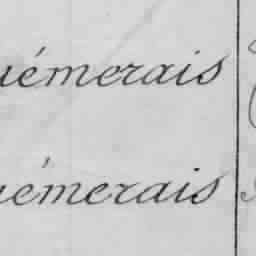 uémerais
uémerais